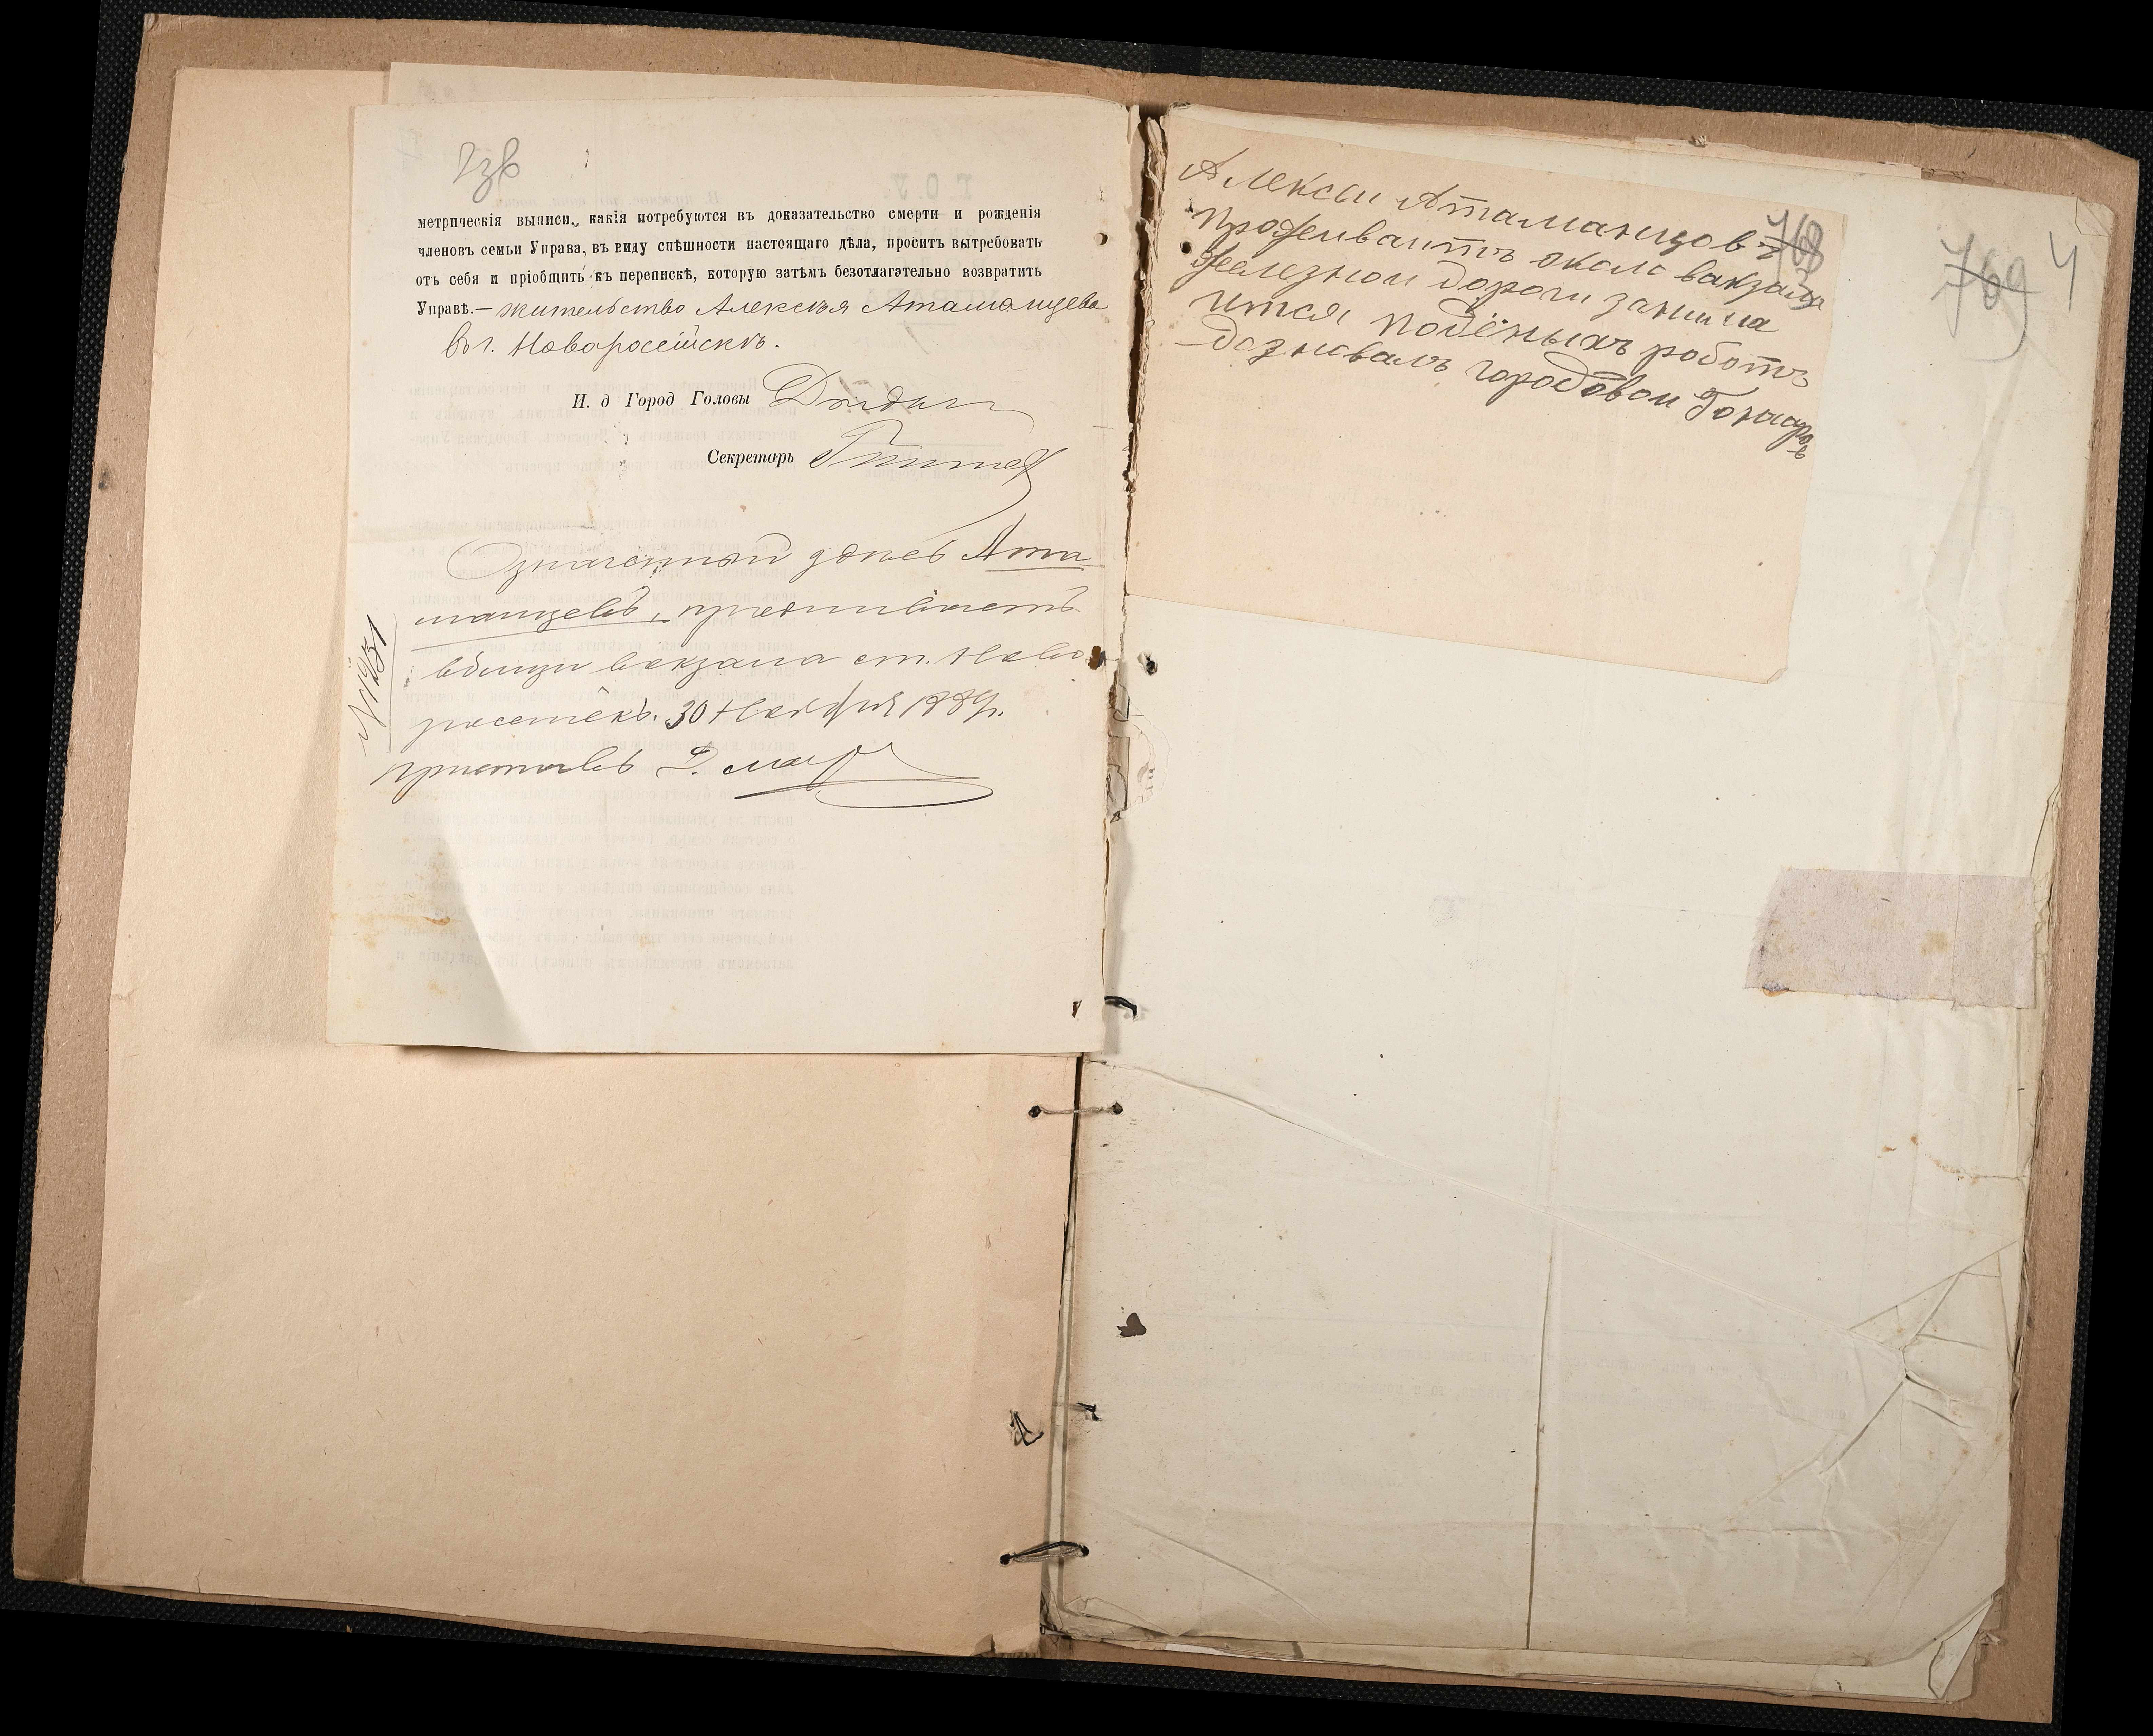 метрическія выписи, какія потребуются въ доказательство смерти и рожденія
членовъ семьи Управа, въ виду спѣшности настоящаго дѣла, проситъ вытребовать
отъ себя и пріобщить къ перепискѣ, которую затѣмъ безотлагательно возвратить
Управѣ.— жительство Алексѣя Атаманцева
въ г. Новоросійскѣ.
И. д Город Головы
Секретарь
Означенный Ата
манцевъ, проживаетъ
вблизи вокзала ст. Ново
30 Ноября 1889 г.
приставъ
Алексѣи Атаманцовъ
проживаитъ около вакзала
железнои дороги занима
ится подёныхъ роботъ
дозновалъ городовои Гончаровъ
768
769 4